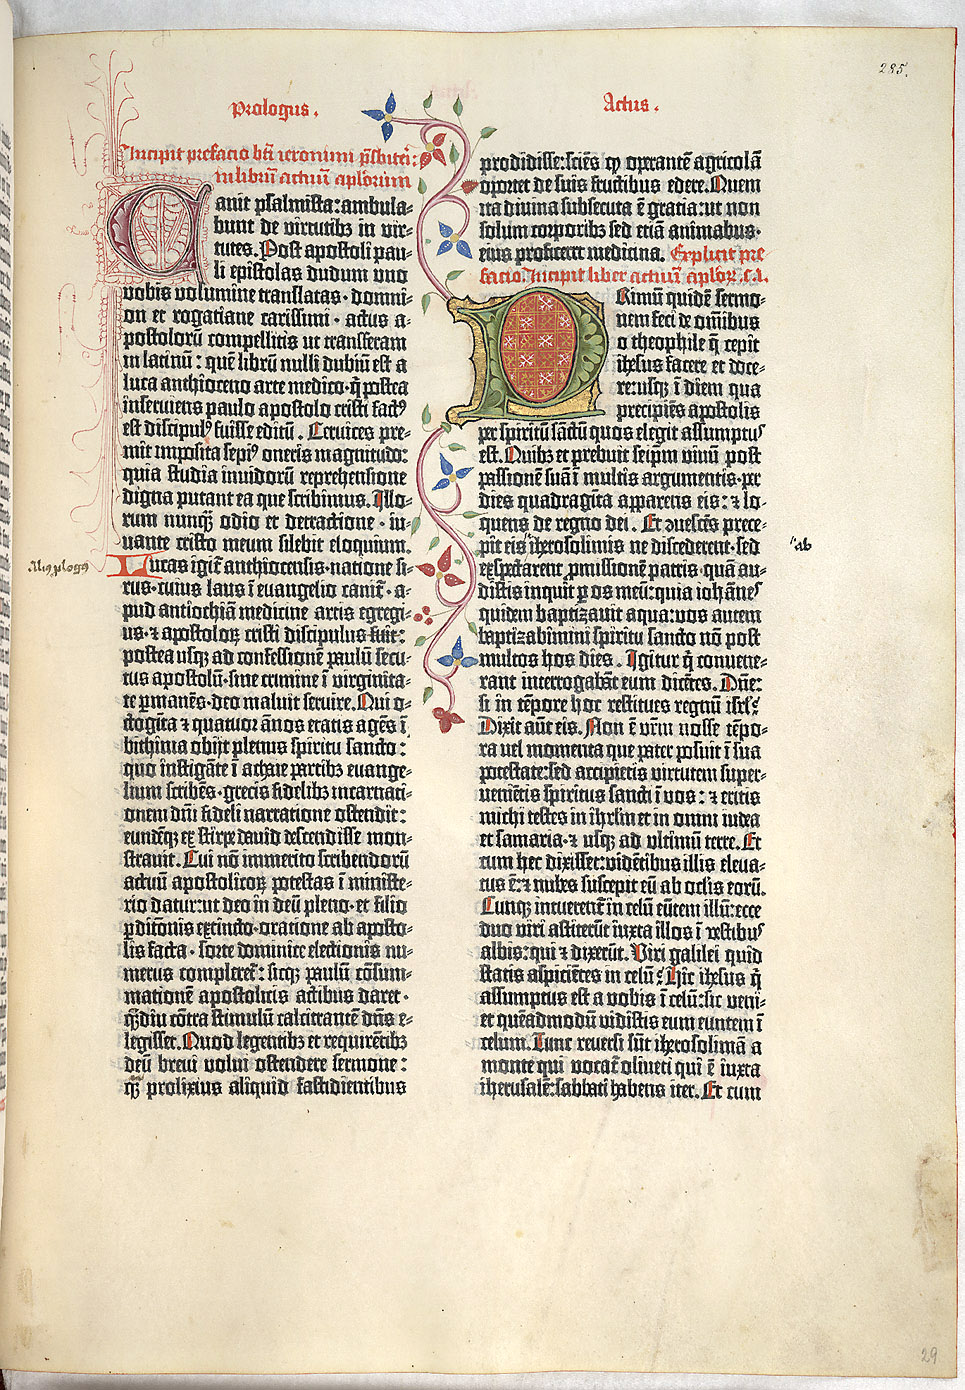 285.
Prologus.
Actus.
Incipit prefacio bti ieronimi p̄sbiteri:
in librū actuū aplorum
Canit psalmista: ambula-
bunt de virtutibꝫ in vir-
tutes. Post apostoli pau-
li epistolas dudum uno
vobis volumine translatas· domni-
on et rogatiane carissimi· actus a-
postolorū compellitis ut transferam
in latinū: quē librū nulli dubiū est a
luca anthioceno arte medico· q̄ postea
inserviens paulo apostolo cristi factꝰ
est discipulꝰ fuisse editū. Cervices pre-
mit imposita sepiꝰ oneris magnitudo:
quia studia invidorū reprehensione
digna putant ea que scribimus. Illo-
rum nunqꝫ odio et detractione· iu-
vante cristo meum silebit eloquium.
Aliꝰ ꝓlogꝰ
Lucas igit̄ anthiocensis· natione si-
rus· cuius laus ī euangelio canit̄· a-
pud antiochiā medicine artis egregi-
us· ⁊ apostoloꝝ cristi discipulus fuit:
postea usqꝫ ad confessionē paulū secu-
tus apostolū· sine crimine ī virginita-
te ꝑmanēs· deo maluit servire. Qui o-
ctogīta ⁊ quatuor ānos etatis agēs ī
bithinia obijt plenus spiritu sancto:
quo īstigāte ī achaie partibꝫ euange-
lium scribēs· grecis fidelibꝫ incarnati-
onem dn̄i fideli narratione ostendit:
eundēqꝫ ex stirpe david descendisse mon-
stravit. Cui nō immerito scribendorū
actuū apostolicoꝝ potestas ī ministe-
rio datur: ut deo in deū pleno· et filio
ꝑditōnis extincto· oratione ab aposto-
lis facta· sorte dominice electionis nu-
merus compleret̄: sicqꝫ paulū cōsum-
mationē apostolicis actibus daret·
q̄diu cōtra stimulū calcitrantē dn̄s e-
legisset. Quod legentibꝫ et requirētibꝫ
deū brevi volui ostendere sermone:
q̄ꝫ prolixius aliquid fastidientibus
prodidisse: sciēs ꝙ operantē agricolā
oportet de suis fructibus edere. Quem
ita divina subsecuta ē gratia: ut non
solum corporibꝫ sed etiā animabus·
eius proficeret medicina. Explicit pre
facio. Incipit liber actuū aploꝝ. ca.
Primū quidē sermo-
nem feci de om̄ibus
o theophile q̄ cepit
ihesus facere et doce-
re: usqꝫ ī diem qua
precipiēs apostolis
per spiritū sāctū quos elegit assumptuꝰ
est. Quibꝫ et prebuit seip̄m vivū post
passionē suā ī multis argumentis· per
dies quadragīta apparens eis: ⁊ lo-
quens de regno dei. Et ꝯvescēs prece-
pit eis iherosolimis ne discederent· sed
ab
exspectarent ꝓmissionē patris· quā au-
distis inquit ꝑ os meū: quia iohānes
quidem baptizavit aqua: vos autem
baptizabimini spiritu sancto nō post
multos hos dies. Igitur q̄ convene-
rant interrogabāt eum dicētes. Dn̄e:
si in tēpore hoc restitues regnū isrl̄?
Dixit aūt eis. Non ē vr̄m nosse tēpo-
ra vel momenta que pater posuit ī sua
potestate: sed accipietis virtutem super-
venietis spiritus sancti ī vos: ⁊ eritis
michi testes in ihrl̄m et in omni iudea
et samaria· ⁊ usqꝫ ad ultimū terre. Et
cum hec dixisset: videntibus illis eleva-
tus ē: ⁊ nubes suscepit eū ab oclis eorū.
Cunqꝫ intuerent̄ in celū eūtem illū: ecce
duo viri astiterūt iuxta illos ī vestibuꝰ
albis: qui ⁊ dixerūt. Viri galilei quid
statis aspiciētes in celū? Hic ihesus q̄
assumptus est a vobis ī celū: sic veni-
et quēadmodū vidistis eum euntem ī
celum. Tunc reversi sūt iherosolimā a
monte qui vocat̄ oliveti qui ē iuxta
iherusalē: sabbati habens iter. Et cum
29